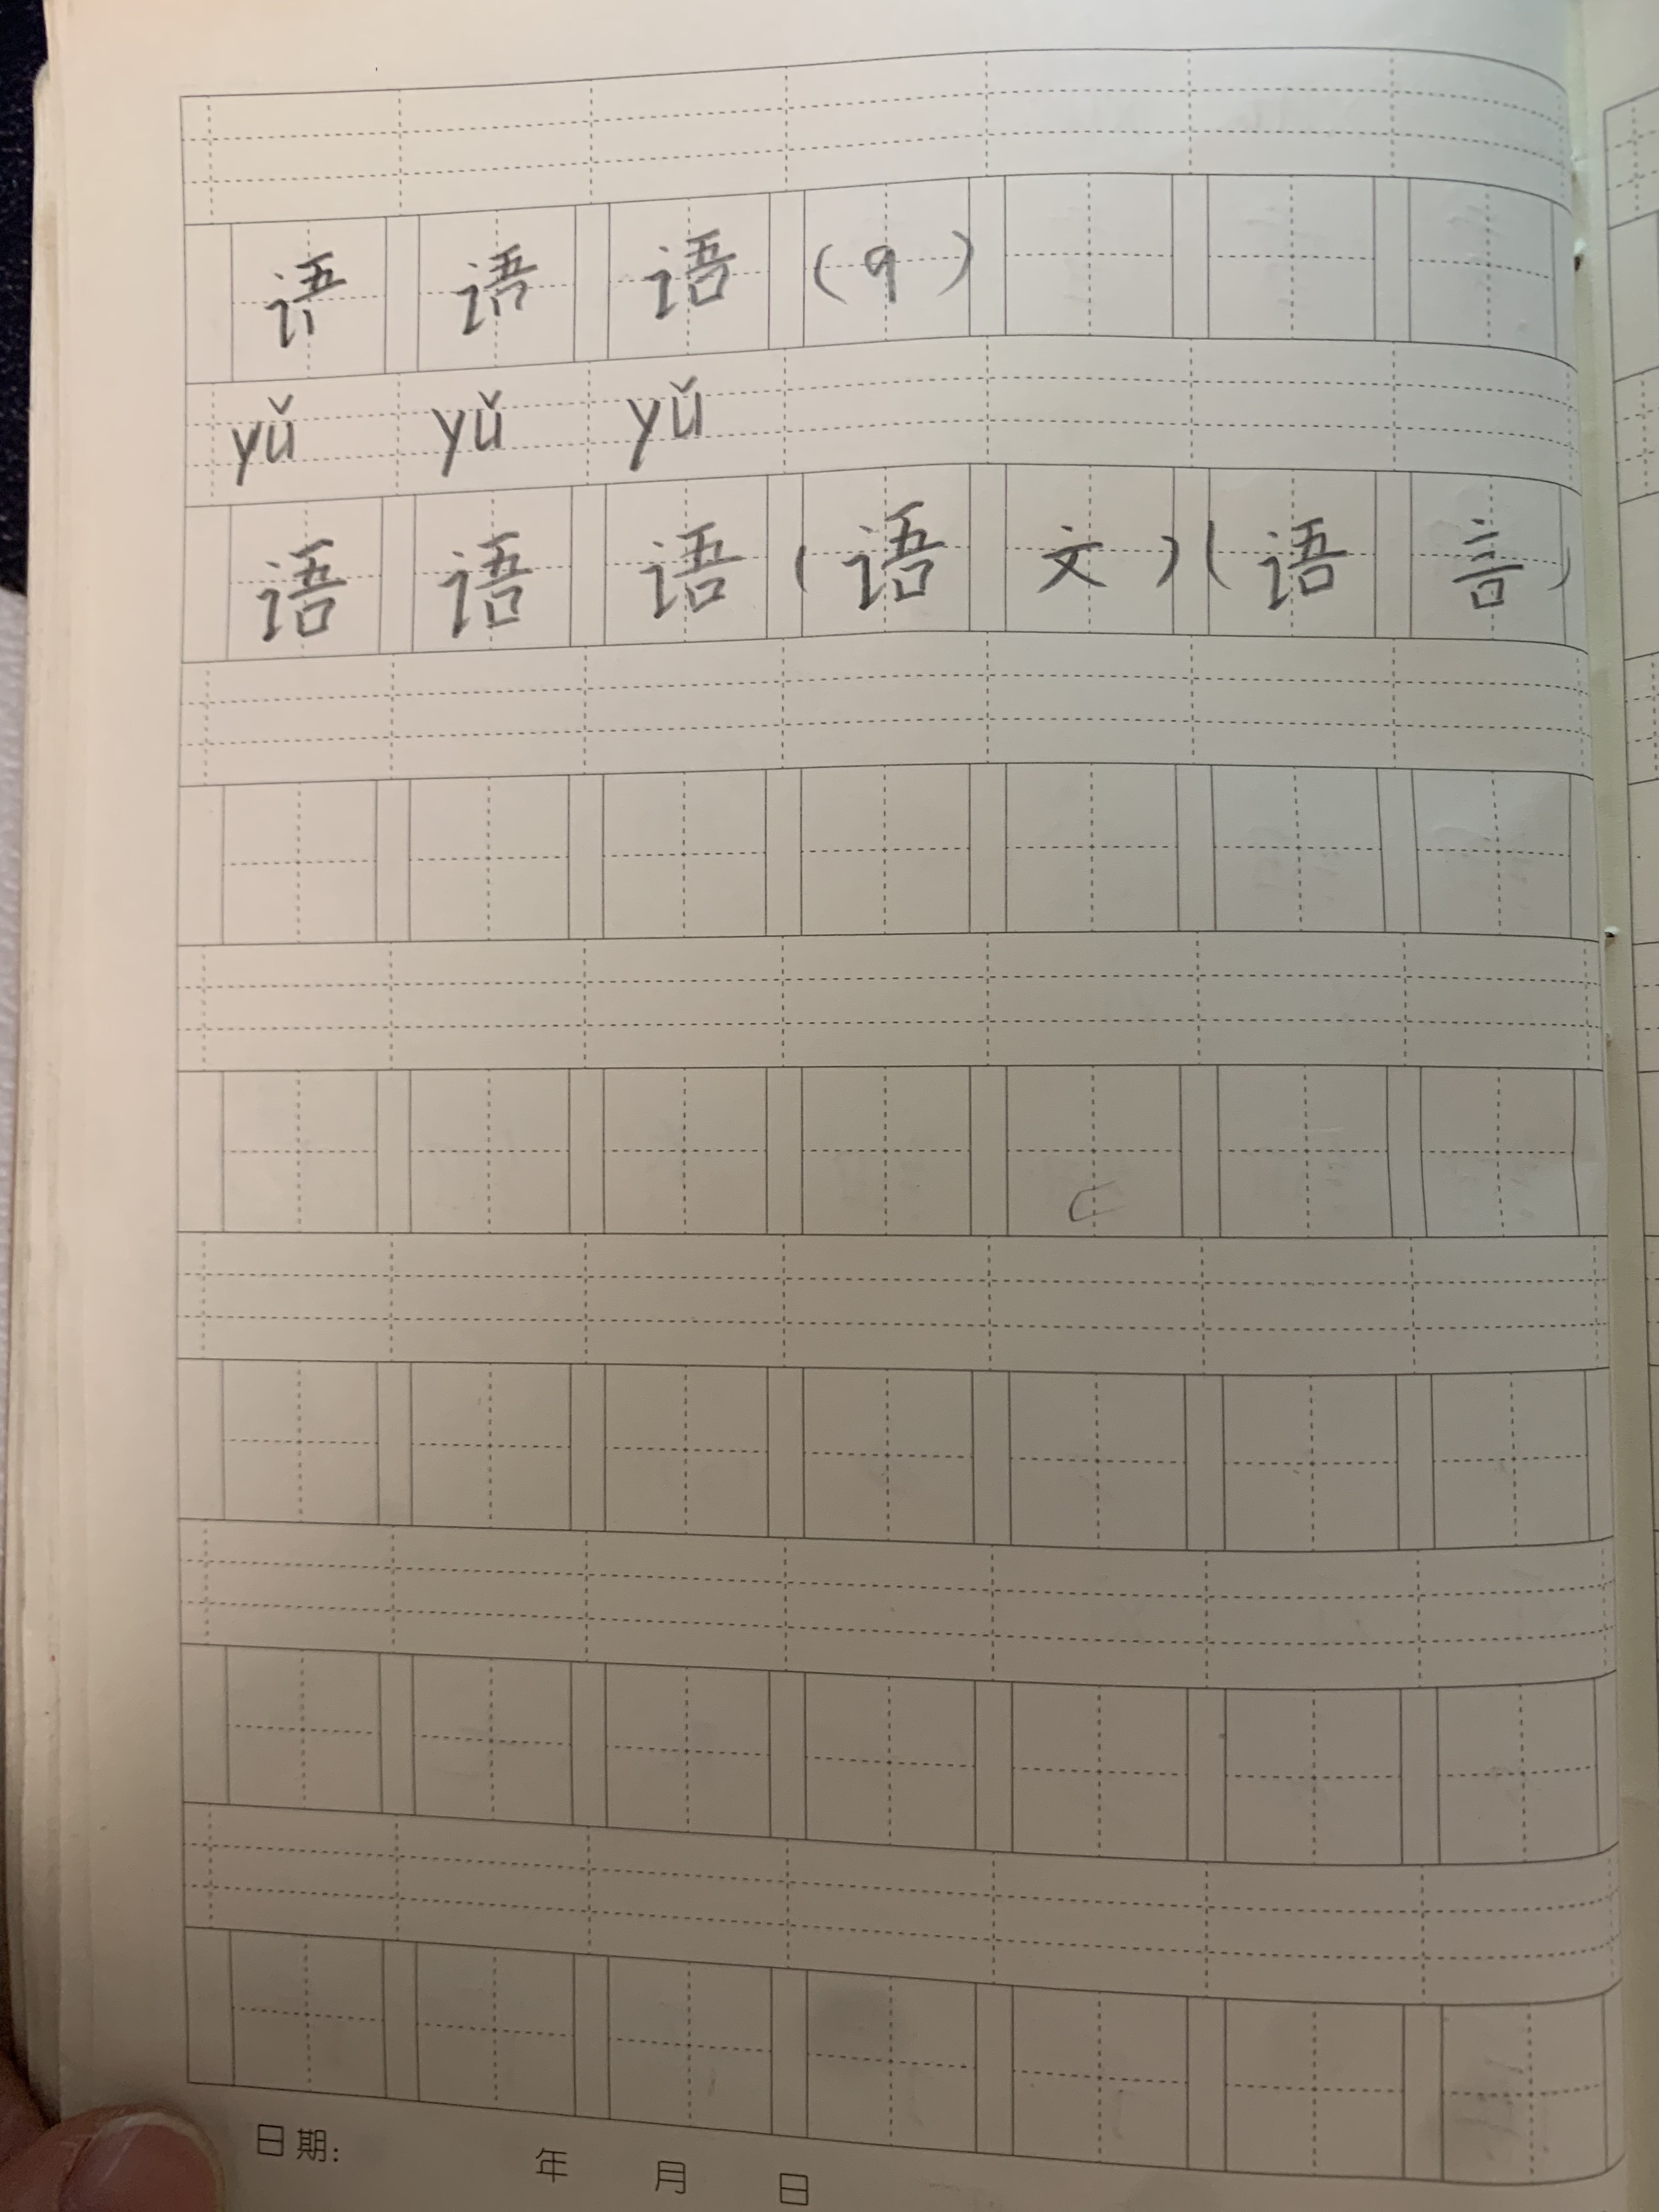 语 语 语 (9)
yǔ yǔ yǔ
语 语 语 (语 文) (语 言)
日期: 年 月 日